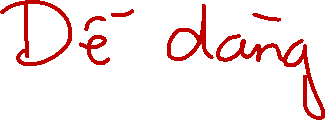 Dễ dàng